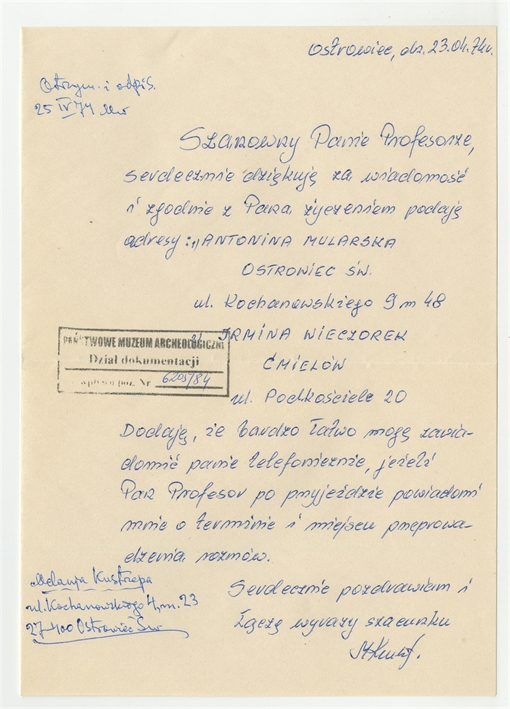 Ostrowiec, dn. 23.04.74r.
Otrzym. i odpis.
25 IV 74
Szanowny Panie Profesorze,
serdecznie dziękuję za wiadomość
i zgodnie z Pana życzeniem podaję
adresy: 1) ANTONINA MULARSKA
OSTROWIEC ŚW.
ul. Kochanowskiego 9 m 48
2) IRMINA WIECZOREK
ĆMIELÓW
ul. Podkościele 20
PAŃSTWOWE MUZEUM ARCHEOLOGICZNE
Dział dokumentacji
wpływu poz. Nr 6205/84
Dodaję, że bardzo łatwo mogę zawia-
domić panie telefonicznie, jeżeli
Pan Profesor po przyjeździe powiadomi
mnie o terminie i miejscu przeprowa-
dzenia rozmów.
Serdecznie pozdrawiam i
łączę wyrazy szacunku
Melania Kustrzepa
ul. Kochanowskiego 4, m. 23
27-400 Ostrowiec Św